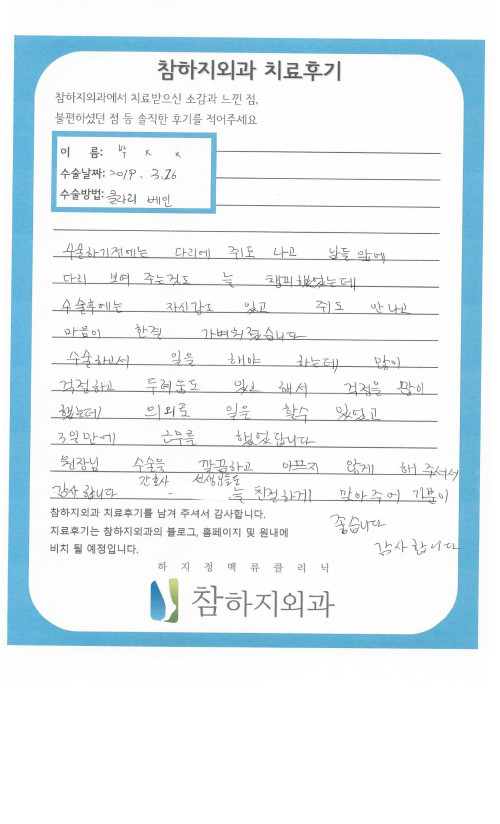 참하지외과 치료후기
참하지외과에서 치료받으신 소감과 느낀 점,
불편하셨던 점 등 솔직한 후기를 적어주세요
이 름: 박 x x
수술날짜: 2019. 3.26
수술방법: 클라리 베인
수술하기전에는 다리에 쥐도 나고 남들 앞에
다리 보여 주는것도 늘 챙피했었는데
수술후에는 자신감도 있고 쥐도 안나고
마음이 한결 가벼워졌습니다
수술하고서 일을 해야 하는데 많이
걱정하고 두려움도 있고 해서 걱정을 많이
했는데 의외로 일을 할수 있었고
3일만에 근무를 했었답니다
원장님 수술을 깔끔하고 아프지 않게 해 주셔서
감사합니다 간호사 선생님들도 늘 친절하게 맞아주어 기분이
좋습니다
감사합니다
참하지외과 치료후기를 남겨 주셔서 감사합니다.
치료후기는 참하지외과의 블로그, 홈페이지 및 원내에
비치 될 예정입니다.
하지정맥류클리닉
참하지외과